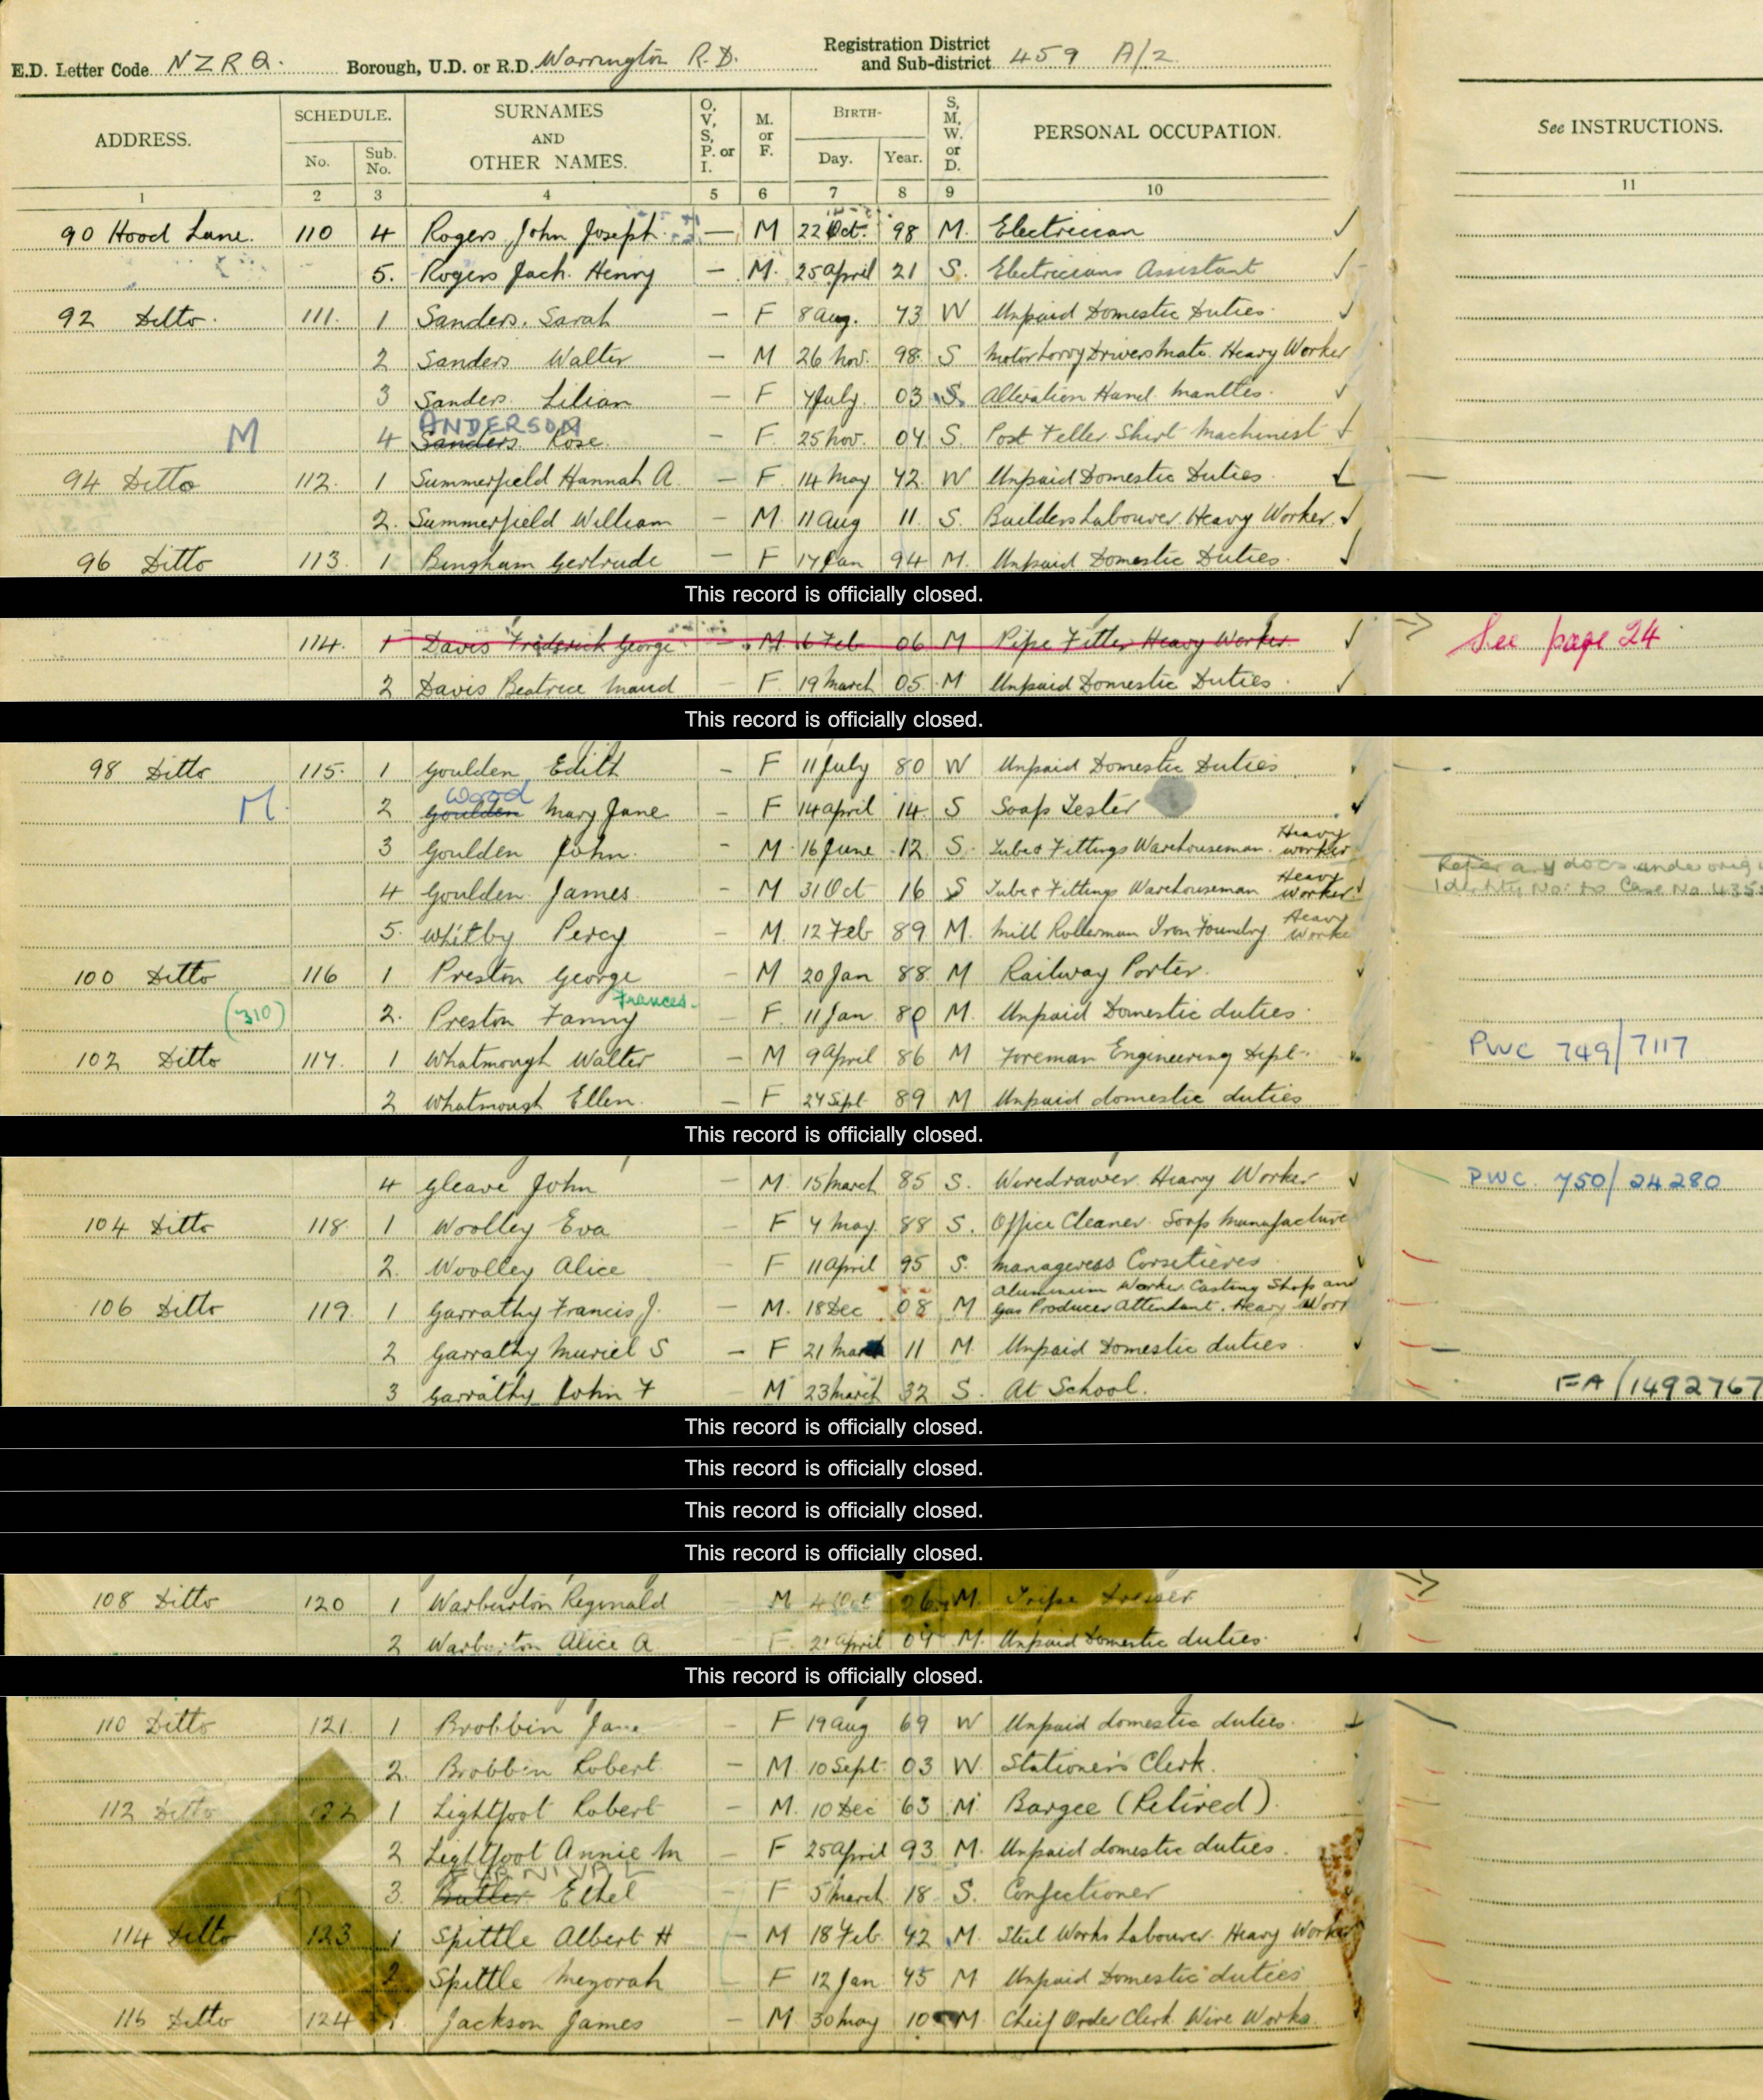 E.D. Letter Code NZRQ. Borough, U.D. or R.D. Warrington R.D. Registration District and Sub-district 459 A/2
ADDRESS. SCHEDULE. No. Sub. No. SURNAMES AND OTHER NAMES. O, V, S, P. or I. M. or F. BIRTH- Day. Year. S, M, W. or D. PERSONAL OCCUPATION. See INSTRUCTIONS.
1 2 3 4 5 6 7 8 9 10 11
90 Hood Lane. 110 4 Rogers John Joseph — M 22 Oct. 98 M. Electrician ✓
5. Rogers Jack Henry — M. 25 April 21 S. Electricians Assistant ✓
92 Ditto. 111. 1 Sanders. Sarah — F 8 Aug. 73 W Unpaid Domestic Duties. ✓
2 Sanders Walter — M 26 Nov. 98. S Motor Lorry Drivers Mate. Heavy Worker
3 Sanders. Lilian — F 7 July. 03 S. Alteration Hand Mantles. ✓
ANDERSON
M 4 Sanders Rose. — F. 25 Nov. 04 S. Post Feller Shirt Machinist ✓
94 Ditto 112. 1 Summerfield Hannah A. — F. 14 May 72. W Unpaid Domestic Duties. ✓
2. Summerfield William — M. 11 Aug 11. S. Builders Labourer. Heavy Worker. ✓
96 Ditto 113. 1 Bingham Gertrude — F 17 Jan 94 M. Unpaid Domestic Duties. ✓
This record is officially closed.
114. 1 Davis Frederick George — M. 6 Feb 06 M Pipe Fitter Heavy Worker. ✓ See page 24
2 Davis Beatrice Maud — F. 19 March 05. M Unpaid Domestic Duties. ✓
This record is officially closed.
98 Ditto 115. 1 Goulden Edith — F 11 July 80 W Unpaid Domestic Duties
Wood
M. 2 Goulden Mary Jane — F 14 April 14. S Soap Tester ✓
3 Goulden John. — M. 16 June 12. S. Tube & Fittings Warehouseman. Heavy worker
4 Goulden James. — M 31 Oct 16 S Tube & Fittings Warehouseman Heavy Worker ✓
5. Whitby Percy — M. 12 Feb 89 M. Mill Rollerman Iron Foundry Heavy Worke
100 Ditto 116 1 Preston George — M 20 Jan 88 M Railway Porter. ✓
Frances.
(310) 2. Preston Fanny — F. 11 Jan 80 M. Unpaid Domestic duties.
102 Ditto 117. 1 Whatmough Walter — M 9 April 86 M Foreman Engineering Dept. PWC 749/7117
2 Whatmough Ellen. — F 24 Sept 89 M Unpaid domestic duties
This record is officially closed.
4 Gleave John — M. 15 March 85 S. Wiredrawer. Heavy Worker ✓ PWC. 750/24280
104 Ditto 118. 1 Woolley Eva — F 7 May. 88 S. Office Cleaner. Soap Manufacture
2. Woolley Alice — F 11 April 95 S. Manageress Corsetieres ✓
Aluminium Worker Casting Shop and
106 Ditto 119. 1 Garrathy Francis J. — M. 18 Dec 08 M Gas Producer Attendant. Heavy Work
2 Garrathy Muriel S — F 21 March 11 M. Unpaid Domestic duties ✓
3 Garrathy John F M 23 March 32 S. At School. FA/1492767
This record is officially closed.
This record is officially closed.
This record is officially closed.
This record is officially closed.
108 Ditto 120 1 Warburton Reginald — M 4 Oct 26 M. Tripe Dresser
2 Warburton Alice A — F. 21 April 04 M. Unpaid Domestic duties.
This record is officially closed.
110 Ditto 121. 1 Brobbin Jane — F 19 Aug 69 W Unpaid domestic duties.
2. Brobbin Robert — M. 10 Sept. 03 W. Stationer's Clerk.
112 Ditto 122 1 Lightfoot Robert — M. 10 Dec 63 M. Bargee (Retired).
2 Lightfoot Annie M — F 25 April 93 M. Unpaid domestic duties.
FURNIVAL
3. Butler Ethel — F 5 March 18 S. Confectioner
114 Ditto 123 1 Spittle Albert H — M 18 Feb. 42 M. Steel Works Labourer. Heavy Worker
2 Spittle — F 12 Jan 45 M Unpaid Domestic duties
116 Ditto 124 1. Jackson James — M 30 May 10 M Chief Order Clerk Wire Works.